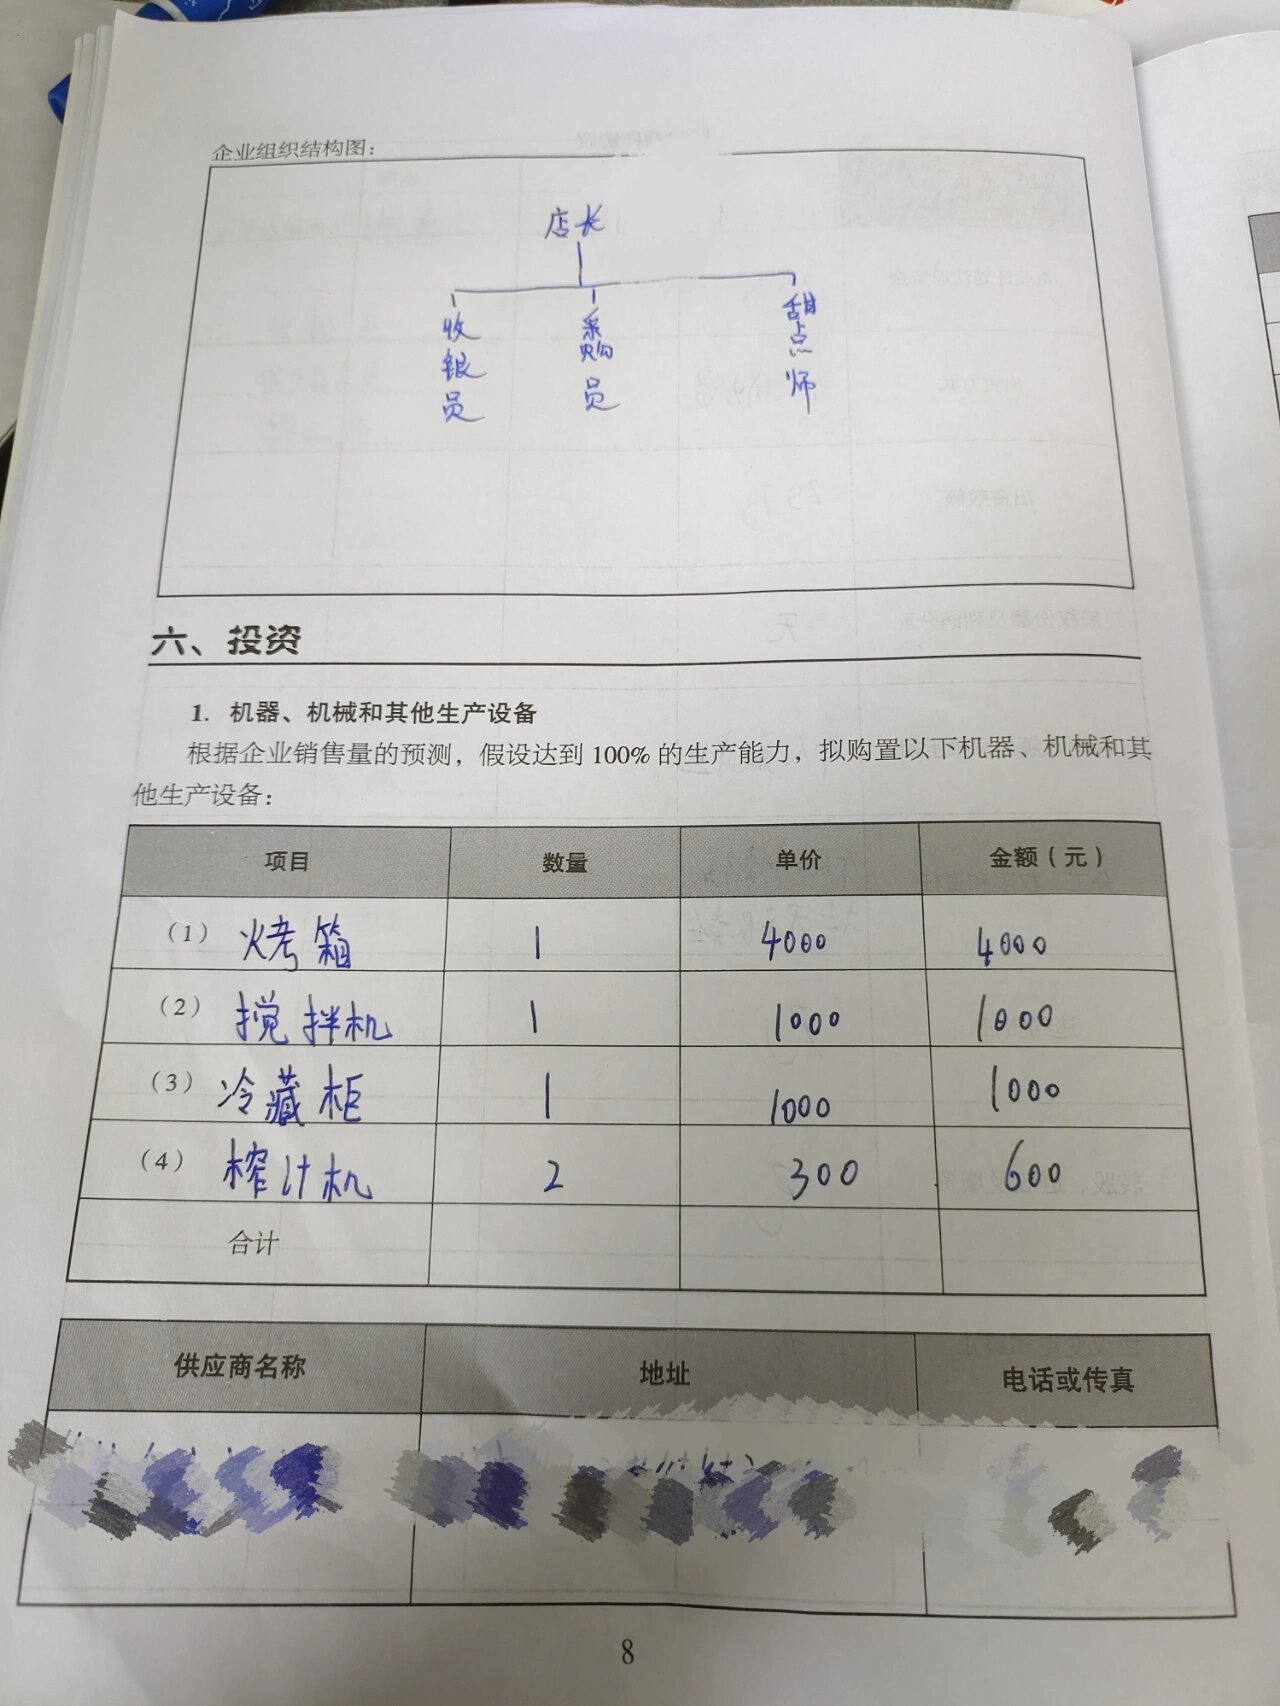 企业组织结构图：
店长
收银员 采购员 甜点师
六、投资
1. 机器、机械和其他生产设备
根据企业销售量的预测，假设达到 100% 的生产能力，拟购置以下机器、机械和其
他生产设备：
项目 数量 单价 金额（元）
（1） 烤箱 1 4000 4000
（2） 搅拌机 1 1000 1000
（3） 冷藏柜 1 1000 1000
（4） 榨汁机 2 300 600
合计
供应商名称 地址 电话或传真
8